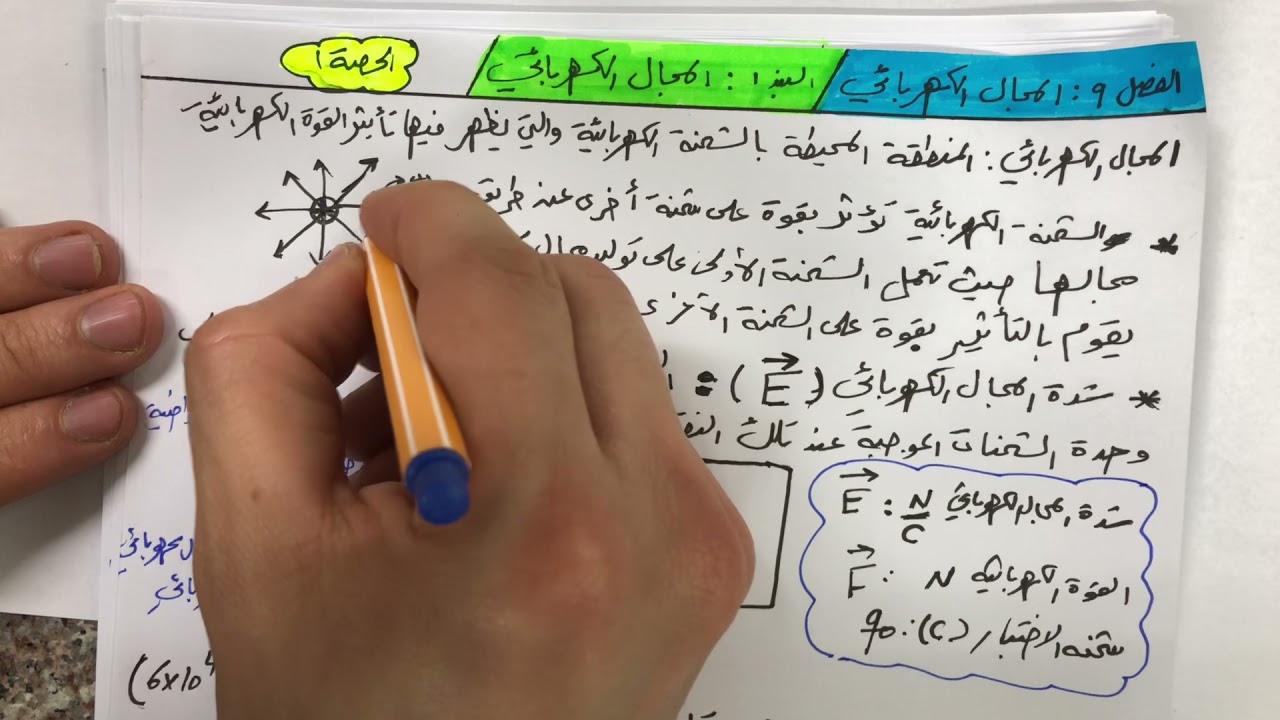 الفصل ٩ : المجال الكهربائي
البند ١ : المجال الكهربائي
الحصة ١
المجال الكهربائي : المنطقة المحيطة بالشحنة الكهربائية والتي يظهر فيها تأثير القوة الكهربائية
* والشحنة الكهربائية تؤثر بقوة على شحنة أخرى عن طريق
مجالها حيث تعمل الشحنة الأولى على توليد مجال
يقوم بالتأثير بقوة على الشحنة الأخرى
* شدة المجال الكهربائي (E) :
وحدة الشحنات الموجبة عند تلك
E : N/C شدة المجال الكهربائي
F : N القوة الكهربائية
q₀ : (C) شحنة الاختبار
(6x10⁴